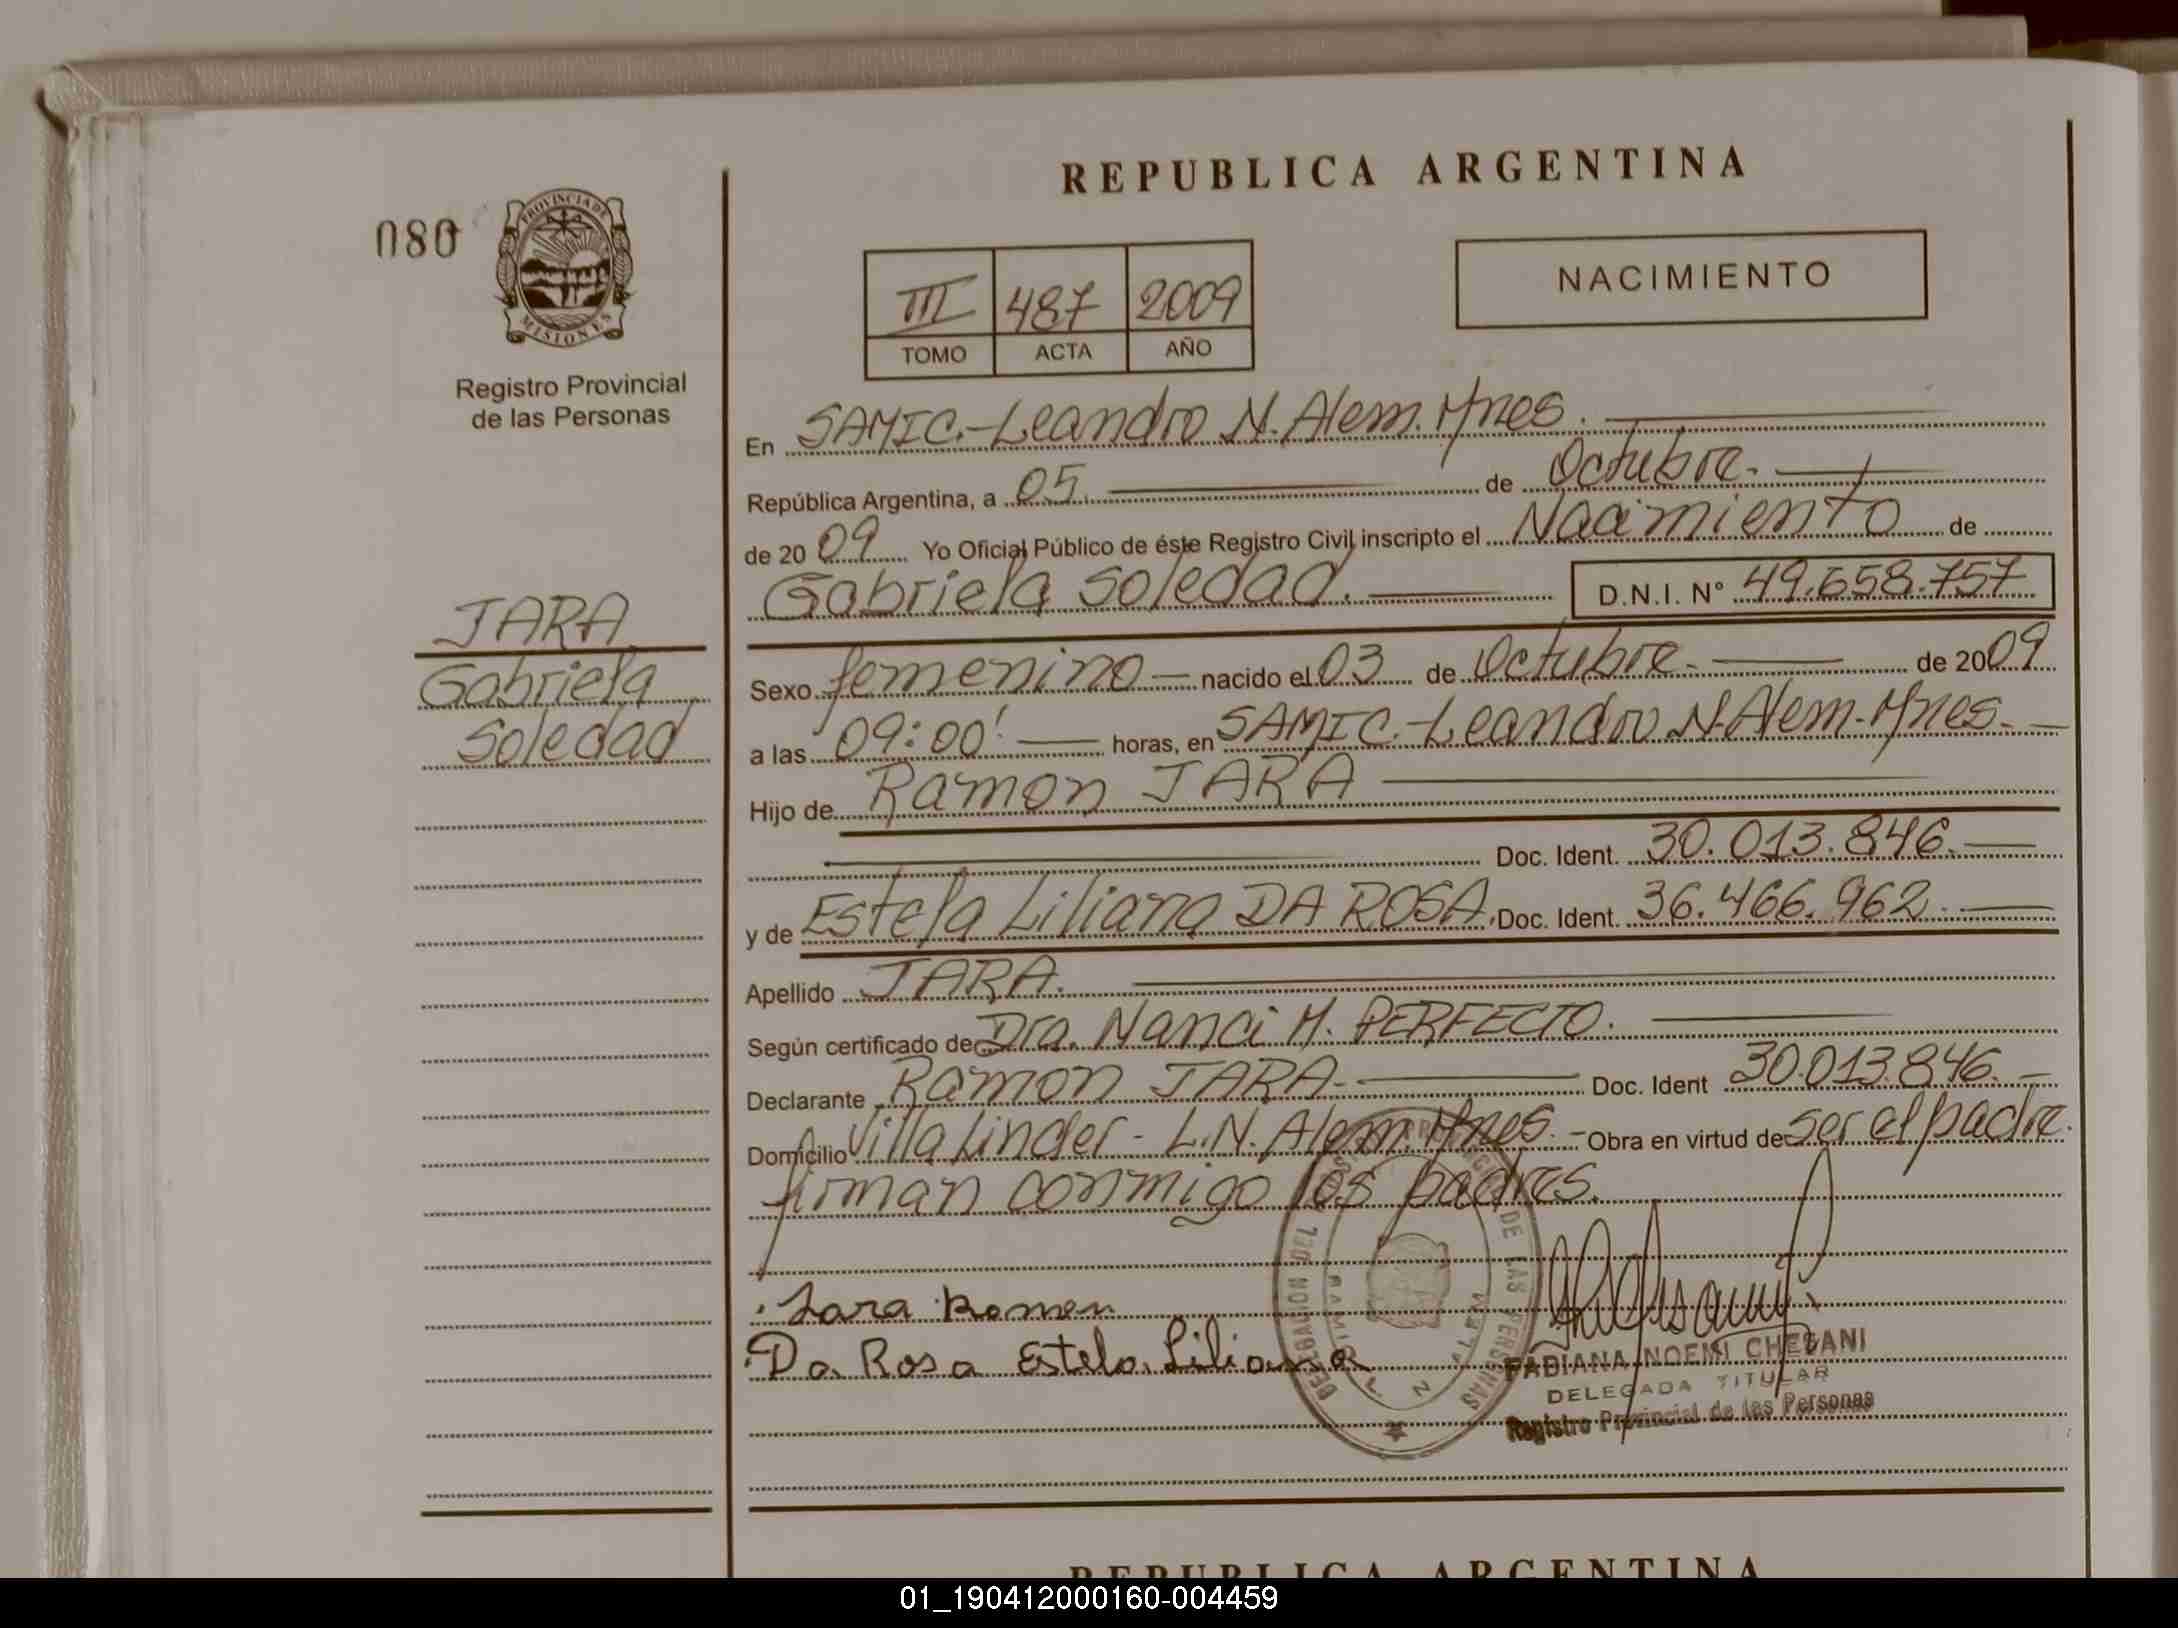 REPUBLICA ARGENTINA
080
PROVINCIA DE
MISIONES
Registro Provincial
de las Personas
III 487 2009
TOMO ACTA AÑO
NACIMIENTO
En SAMIC.-Leandro N. Alem. Mnes.
República Argentina, a 05. de Octubre.
de 20 09 Yo Oficial Público de éste Registro Civil inscripto el Nacimiento de
Gabriela Soledad. D.N.I. N° 49.658.757
JARA
Gabriela
Soledad
Sexo femenino nacido el 03 de Octubre. de 20 09
a las 09:00' horas, en SAMIC.-Leandro N. Alem. Mnes.
Hijo de Ramon JARA
Doc. Ident. 30.013.846.
y de Estela Liliana DA ROSA. Doc. Ident. 36.466.962.
Apellido JARA.
Según certificado de Dra. Nanci M. PERFECTO.
Declarante Ramon JARA. Doc. Ident 30.013.846.
Domicilio Villa Linder - L.N. Alem. Mnes. - Obra en virtud de ser el padre.
firman conmigo los padres.
Jara Ramon
Da Rosa Estela Liliana
DELEGACION DEL DE LAS PERSONAS
L N ALEM
FABIANA NOEMI CHESANI
DELEGADA TITULAR
Registro Provincial de las Personas
REPUBLICA ARGENTINA
01_190412000160-004459